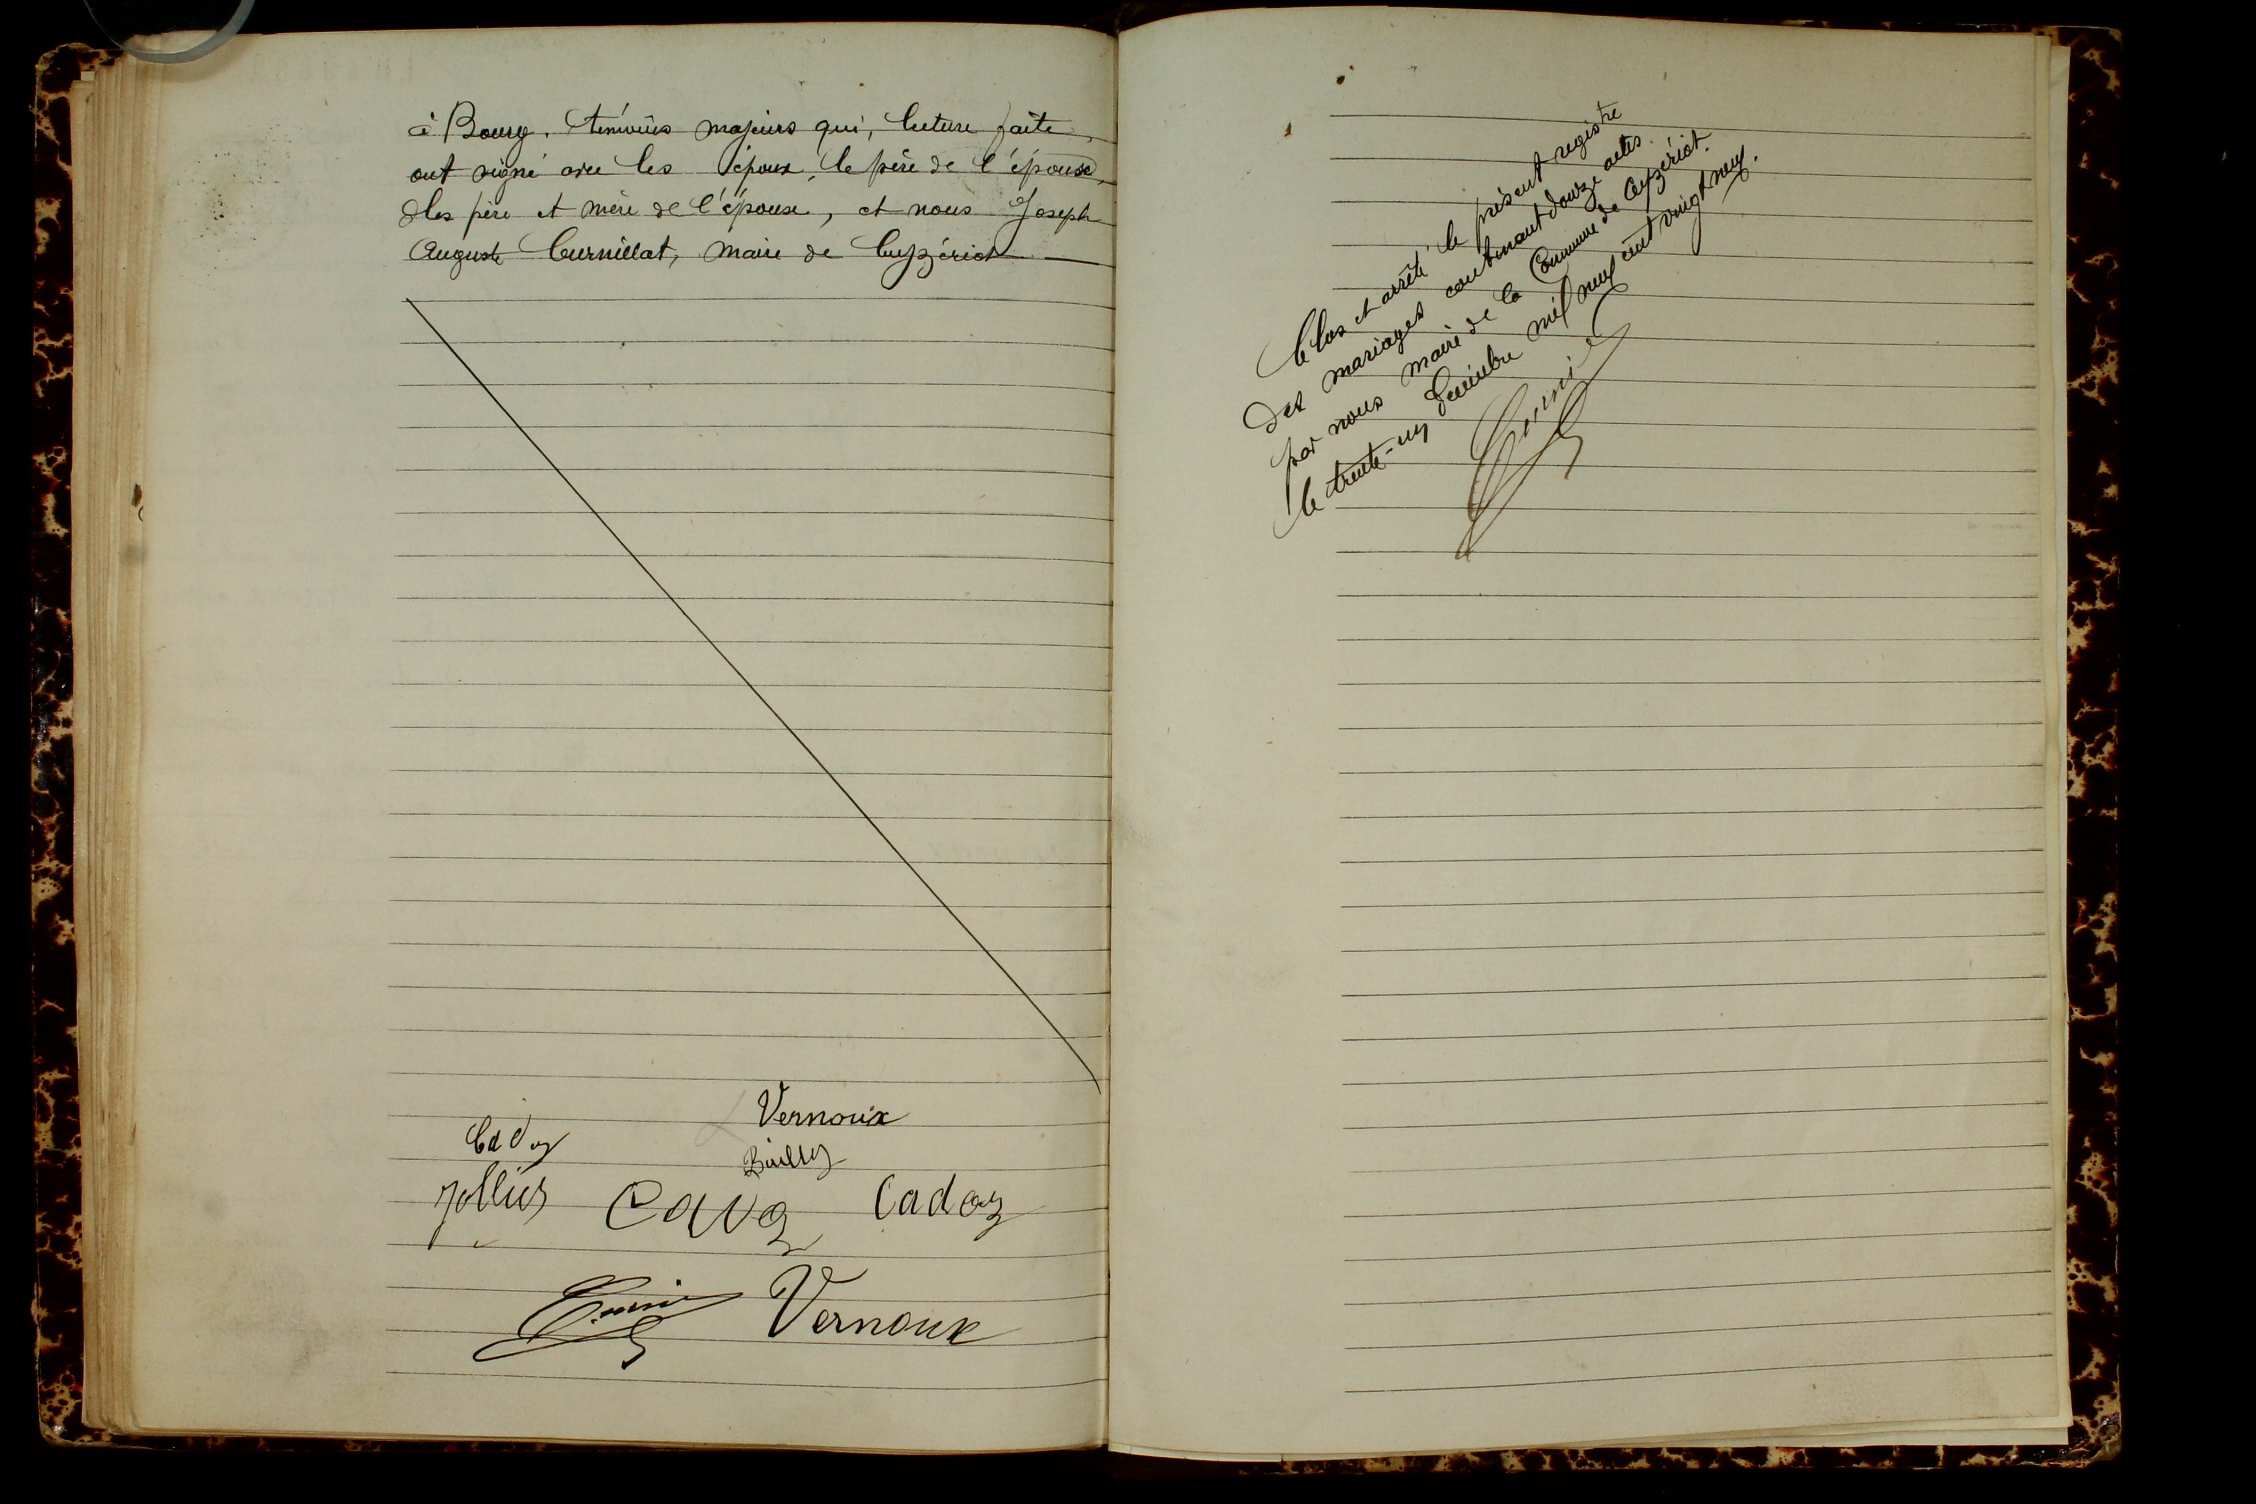 à Bourg. témoins majeurs qui, lecture faite,
ont signé avec les époux, le père de l'épouse,
les père et mère de l'épouse, et nous Joseph
Auguste Curnillat, Maire de Ceyzériat
Vernoux
Cadoz
Bailly
Cadoz
Vernoux
Clos et arrêté le présent registre
des mariages contenant douze actes
par nous maire de la Commune de Ceyzériat.
le trente-un Décembre mil neuf cent vingt neuf.